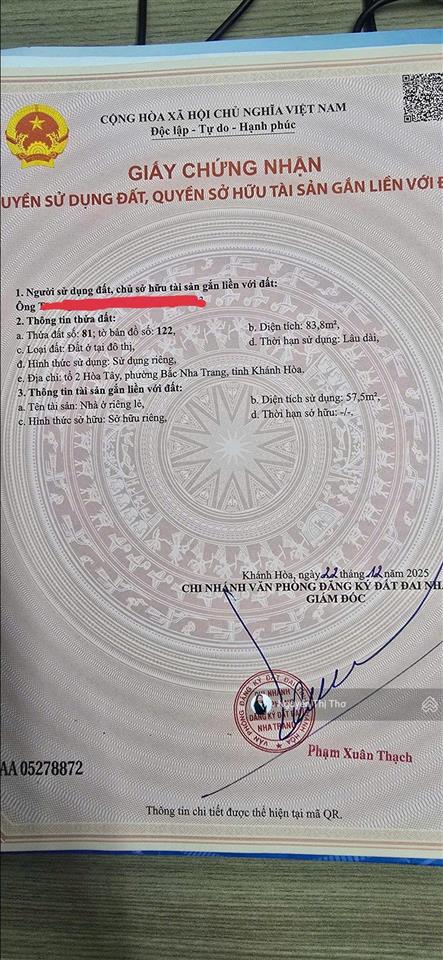 CỘNG HÒA XÃ HỘI CHỦ NGHĨA VIỆT NAM
Độc lập - Tự do - Hạnh phúc
GIẤY CHỨNG NHẬN
UYỀN SỬ DỤNG ĐẤT, QUYỀN SỞ HỮU TÀI SẢN GẮN LIỀN VỚI Đ
1. Người sử dụng đất, chủ sở hữu tài sản gắn liền với đất:
Ông T
2. Thông tin thửa đất:
a. Thửa đất số: 81; tờ bản đồ số: 122, b. Diện tích: 83,8m²,
c. Loại đất: Đất ở tại đô thị, d. Thời hạn sử dụng: Lâu dài,
đ. Hình thức sử dụng: Sử dụng riêng,
e. Địa chỉ: tổ 2 Hòa Tây, phường Bắc Nha Trang, tỉnh Khánh Hòa.
3. Thông tin tài sản gắn liền với đất:
a. Tên tài sản: Nhà ở riêng lẻ, b. Diện tích sử dụng: 57,5m²,
c. Hình thức sở hữu: Sở hữu riêng, d. Thời hạn sở hữu: -/-.
Khánh Hòa, ngày 22 tháng 12 năm 2025
CHI NHÁNH VĂN PHÒNG ĐĂNG KÝ ĐẤT ĐAI NHA
GIÁM ĐỐC
VĂN PHÒNG ĐĂNG KÝ ĐẤT ĐAI
CHI NHÁNH
ĐĂNG KÝ ĐẤT ĐAI
NHA TRANG
KHÁNH HÒA
Nguyễn Thị Thơ
Phạm Xuân Thạch
AA 05278872
Thông tin chi tiết được thể hiện tại mã QR.